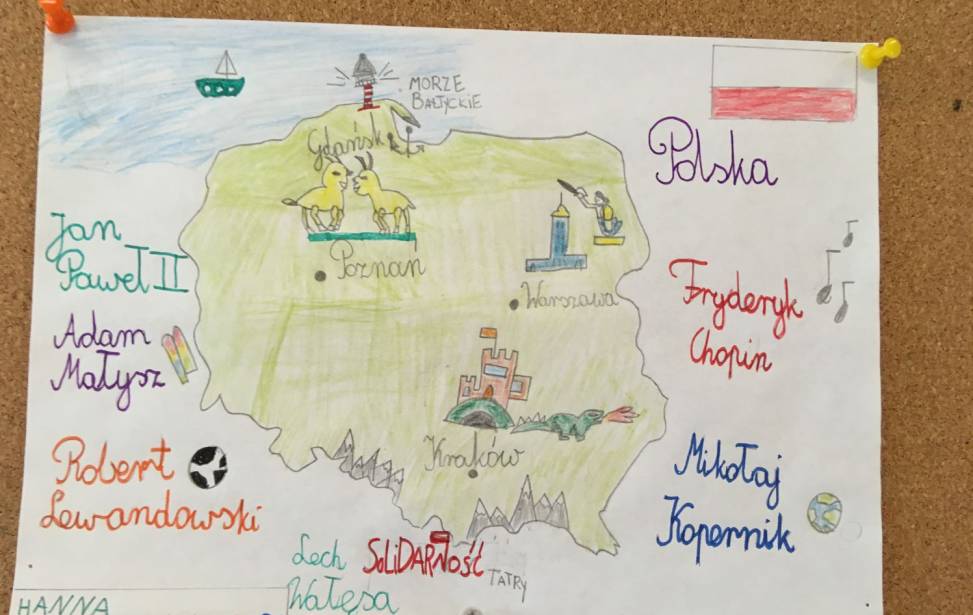 MORZE
BAŁTYCKIE
Gdańsk
Polska
Jan
Paweł II
Poznań
Warszawa
Fryderyk
Chopin
Adam
Małysz
Kraków
Robert
Lewandowski
Mikołaj
Kopernik
Lech SOLiDARNOŚĆ
Wałęsa
TATRY
HANNA